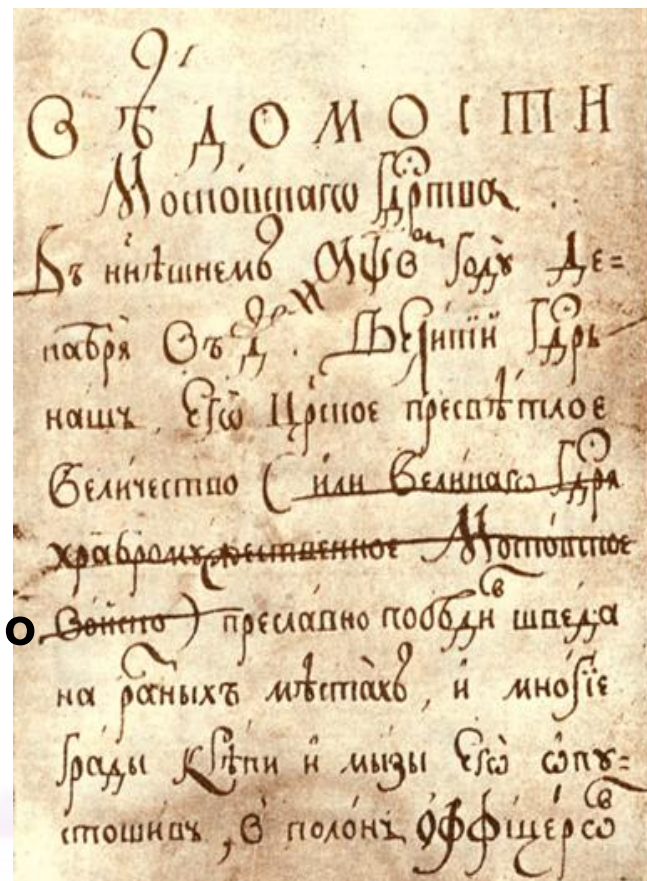 ВѢДОМОСТИ
Московскагѡ Гдрства
Въ нн҃ѣшнемъ ҂аѱв҃ году Де=
кабря Въ д҃. Великїй Гдрь
нашъ, Егѡ Црское пресвѣтлое
Величество ( или Великагѡ Гдря
храброму Московское
О Воиско ) преславно побѣди шведа
на разныхъ мѣстахъ, и многїе
грады и мызы Егѡ ѡпу=
стошивъ, в полонъ Оффицерѡв